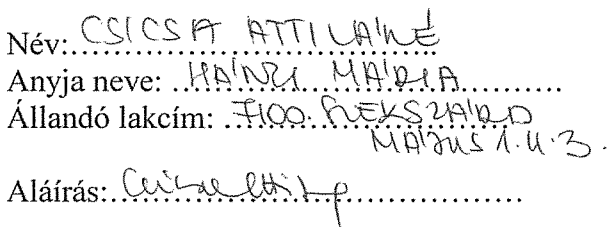 Név: CSICSA ATTILÁNÉ
Anyja neve: HANZI MÁRIA
Állandó lakcím: 7100. SZEKSZÁRD
MÁJUS 1. U. 3.
Aláírás: